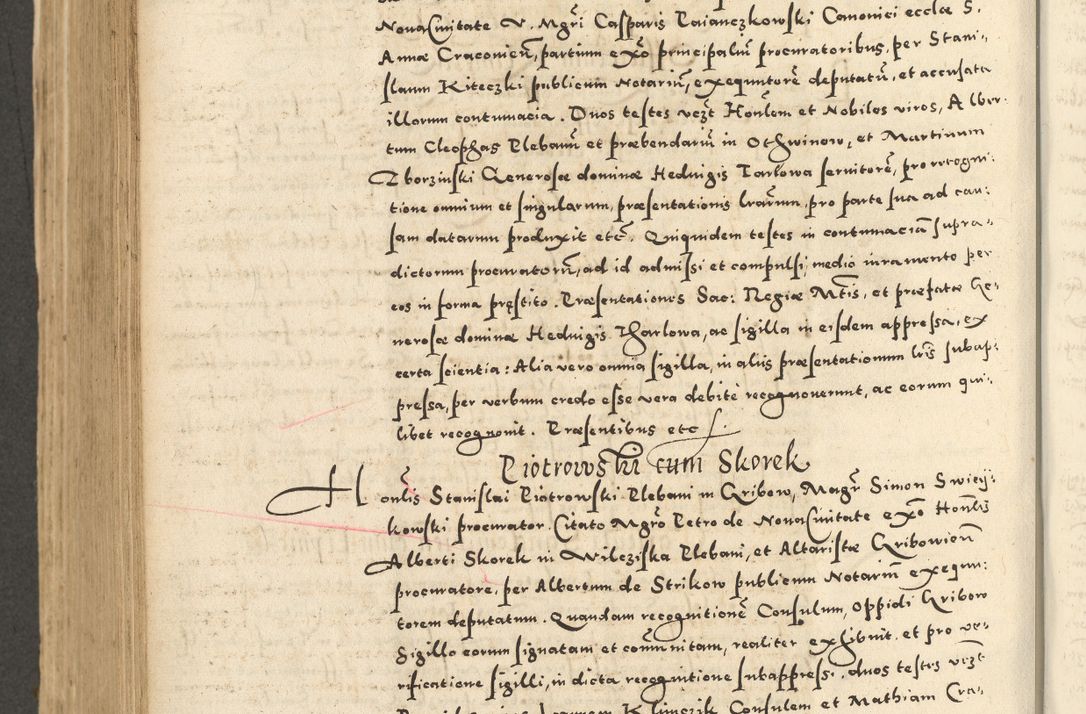 Noua Ciuitate V. Mgrī Casparis Raianczkowski Canonici ecclæ S.
Annæ Cracoñien, partium exõ principaliũ procuratoribus, per Stani-
slaum Kiteczki publicum Notariũ, exequutorẽ deputatũ, et accusata
illorum contumacia. Duos testes vezt Honlem et Nobiles viros, Alber-
tum Cleophas Plebanũ et præbendariũ in Othwinow, et Martinum
Zborzinski Generosæ dominæ Heduigis Tarlowa seruitorẽ, pro recogni-
tione omnium et singularum, præsentationis lrarum, pro parte sua ad cau-
sam datarum produxit etc. Quiquidem testes in contumaciã supra-
dictorum procuratorũ, ad id admissi et compulsi, medio iuramento per
eos in forma pręstito. Præsentationes Sac: Regiæ Mtis, et præfatæ Ge-
nerosæ dominæ Heduigis Tharlowa, ac sigilla in eisdem appressa, ex
certa scientia: Alia vero omnia sigilla, in aliis præsentationum lris subap-
pressa, per verbum credo esse vera debitè recognouerunt, ac eorum qui-
libet recognouit. Præsentibus etc
Piotrowski cum Skorek
Honlis Stanislai Piotrowski Plebani in Gribow, Magr Simon Swiczy-
kowski procurator. Citato Mgro Petro de Noua Ciuitate exõ Honlis
Alberti Skorek in Wilcziska Plebani, et Altaristæ Gribowien
procuratore, per Albertum de Strikow publicum Notariũ exequu-
torem deputatum. Quandam recognitionẽ Consulum, Oppidi Gribow
Sigillo eorum signatam et com̃unitam, realiter exhibuit. et pro ve-
rificatione sigilli, in dicta recognitione subappressi, duos testes vezt
Klimczik Consulem et Mathiam Cra-